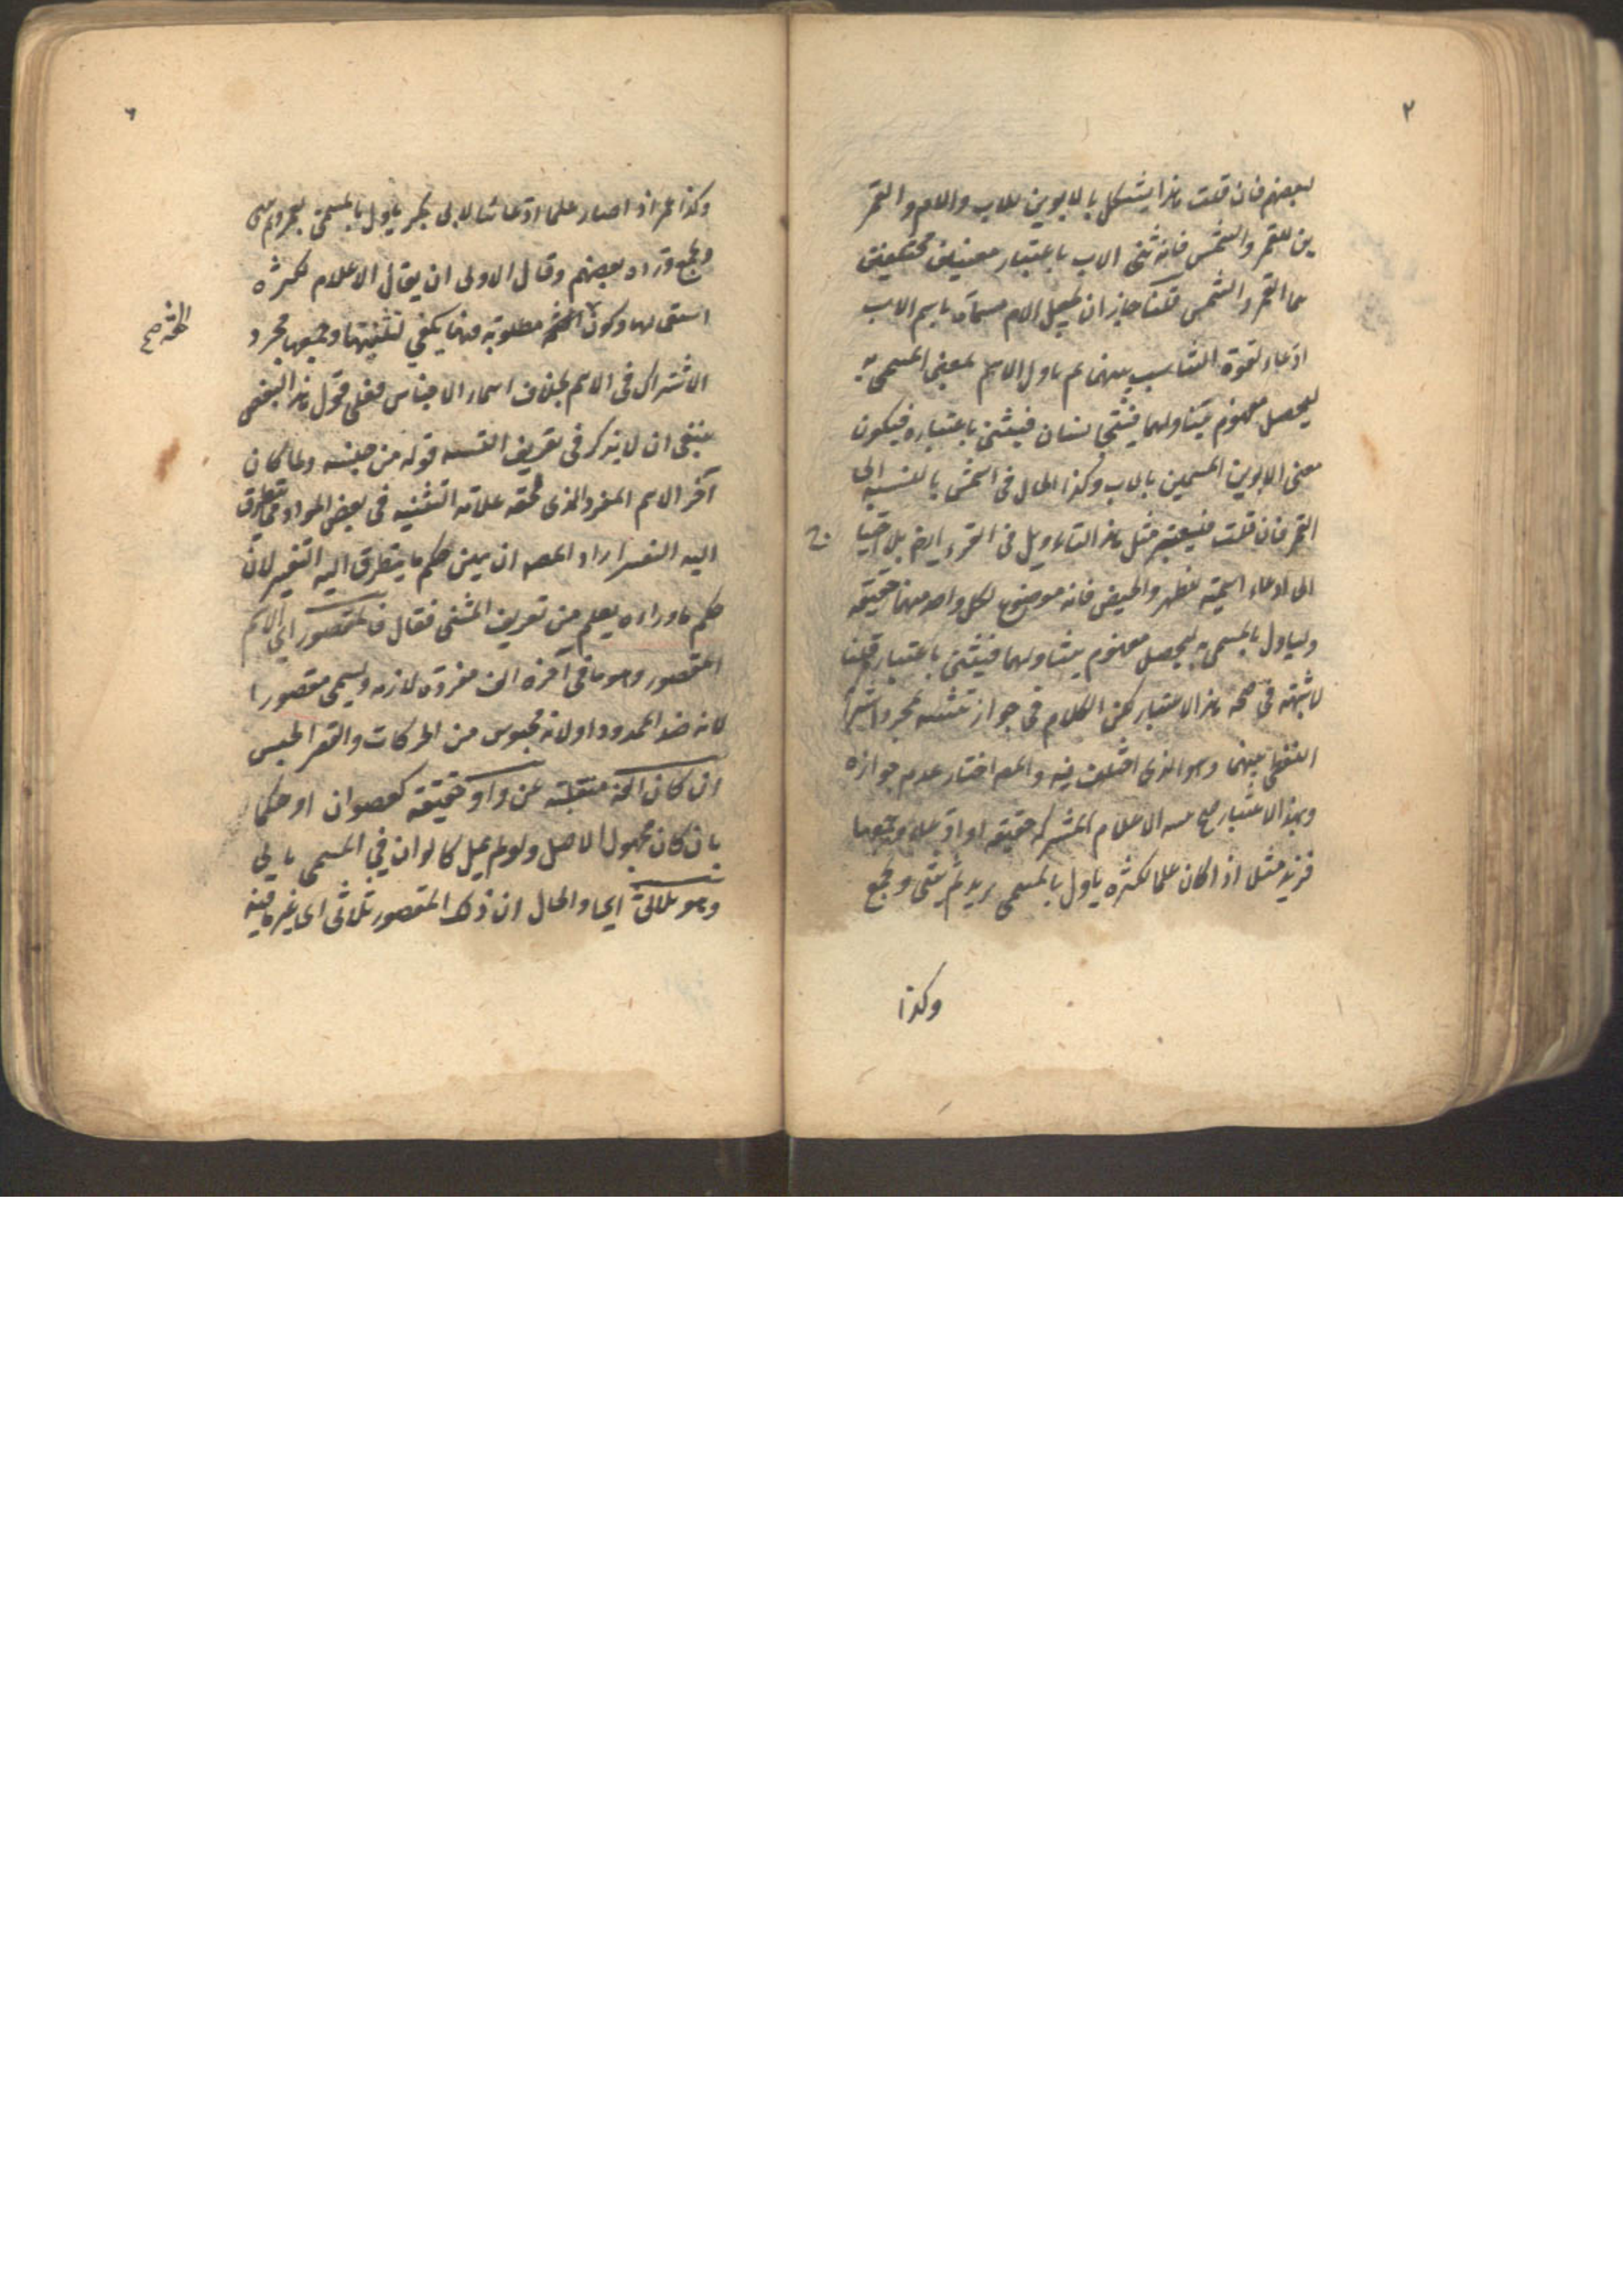 ٢
لبعضهم فان قلت هذا يشكل بالابوين للاب والام والقمر
ين للقمر والشمس فانه ثنى الاب باعتبار معنيين مختلفين
هما القمر والشمس قلنا جاز ان يجعل الام مسماة باسم الاب
ادعاء لقوة التناسب بينهما ثم ياول الاسم بمعنى المسمى به
ليحصل مفهوم يتناولهما فيتجانسان فيثنى باعتباره فيكون
معنى الابوين المسميين بالاب وكذا الحال في الشمس بالنسبة الى
القمر فان قلت فيعتبر مثل هذا التاويل في القرء ايضا بلا احتيا
ج
الى ادعاء اسميته للطهر والحيض فانه موضوع لكل واحد منهما حقيقة
وليأول بالمسمى به ليحصل مفهوم يتناولهما فيثنى باعتباره قلنا
لا شبهة في صحة هذا الاعتبار لكن الكلام في جواز تثنيته بمجرد اشتراك
اللفظ بينهما وهو الذي اختلف فيه والمص اختار عدم جوازه
وبهذا الاعتبار صح تثنيه الاعلام المشتركة حقيقة او ادعاء وجمعها
فزيد مثلا اذا كان علما لكثيرة ياول بالمسمى بزيد ثم يثنى ويجمع
وكذا
٦
وكذا عمر اذا صار علما ادعائيا لابي بكر ياول بالمسمى بعمر ثم يثنى
ويجمع ورده بعضهم وقال الاولى ان يقال الاعلام لكثرة
استعمالها وكون الخفة مطلوبة فيها يكفي لتثنيتها وجمعها مجرد
الخفة صح
الاشتراك في الاسم بخلاف اسماء الاجناس فعلى قول هذا البعض
ينبغي ان لا يذكر في تعريف التثنيه قوله من جنسه ولما كان
آخر الاسم المفرد الذي لحقه علامة التثنيه في بعض المواد مما يتطرق
اليه التغير اراد المص ان يبين حكم ما يتطرق اليه التغير لان
حكم ما وراءه يعلم من تعريف المثنى فقال فالمقصور اي الاسم
المقصور وهو ما في آخره الف مفردة لازمه ويسمى مقصورا
لانه ضد الممدود او لانه محبوس من الحركات والقصر الحبس
ان كان الفه منقلبة عن واو حقيقة كعصوان او حكما
بان كان مجهول الاصل ولم يمل كالوان في المسمى بالى
وهو ثلاثي اي والحال ان ذلك المقصور ثلاثي اي غير ما فيه